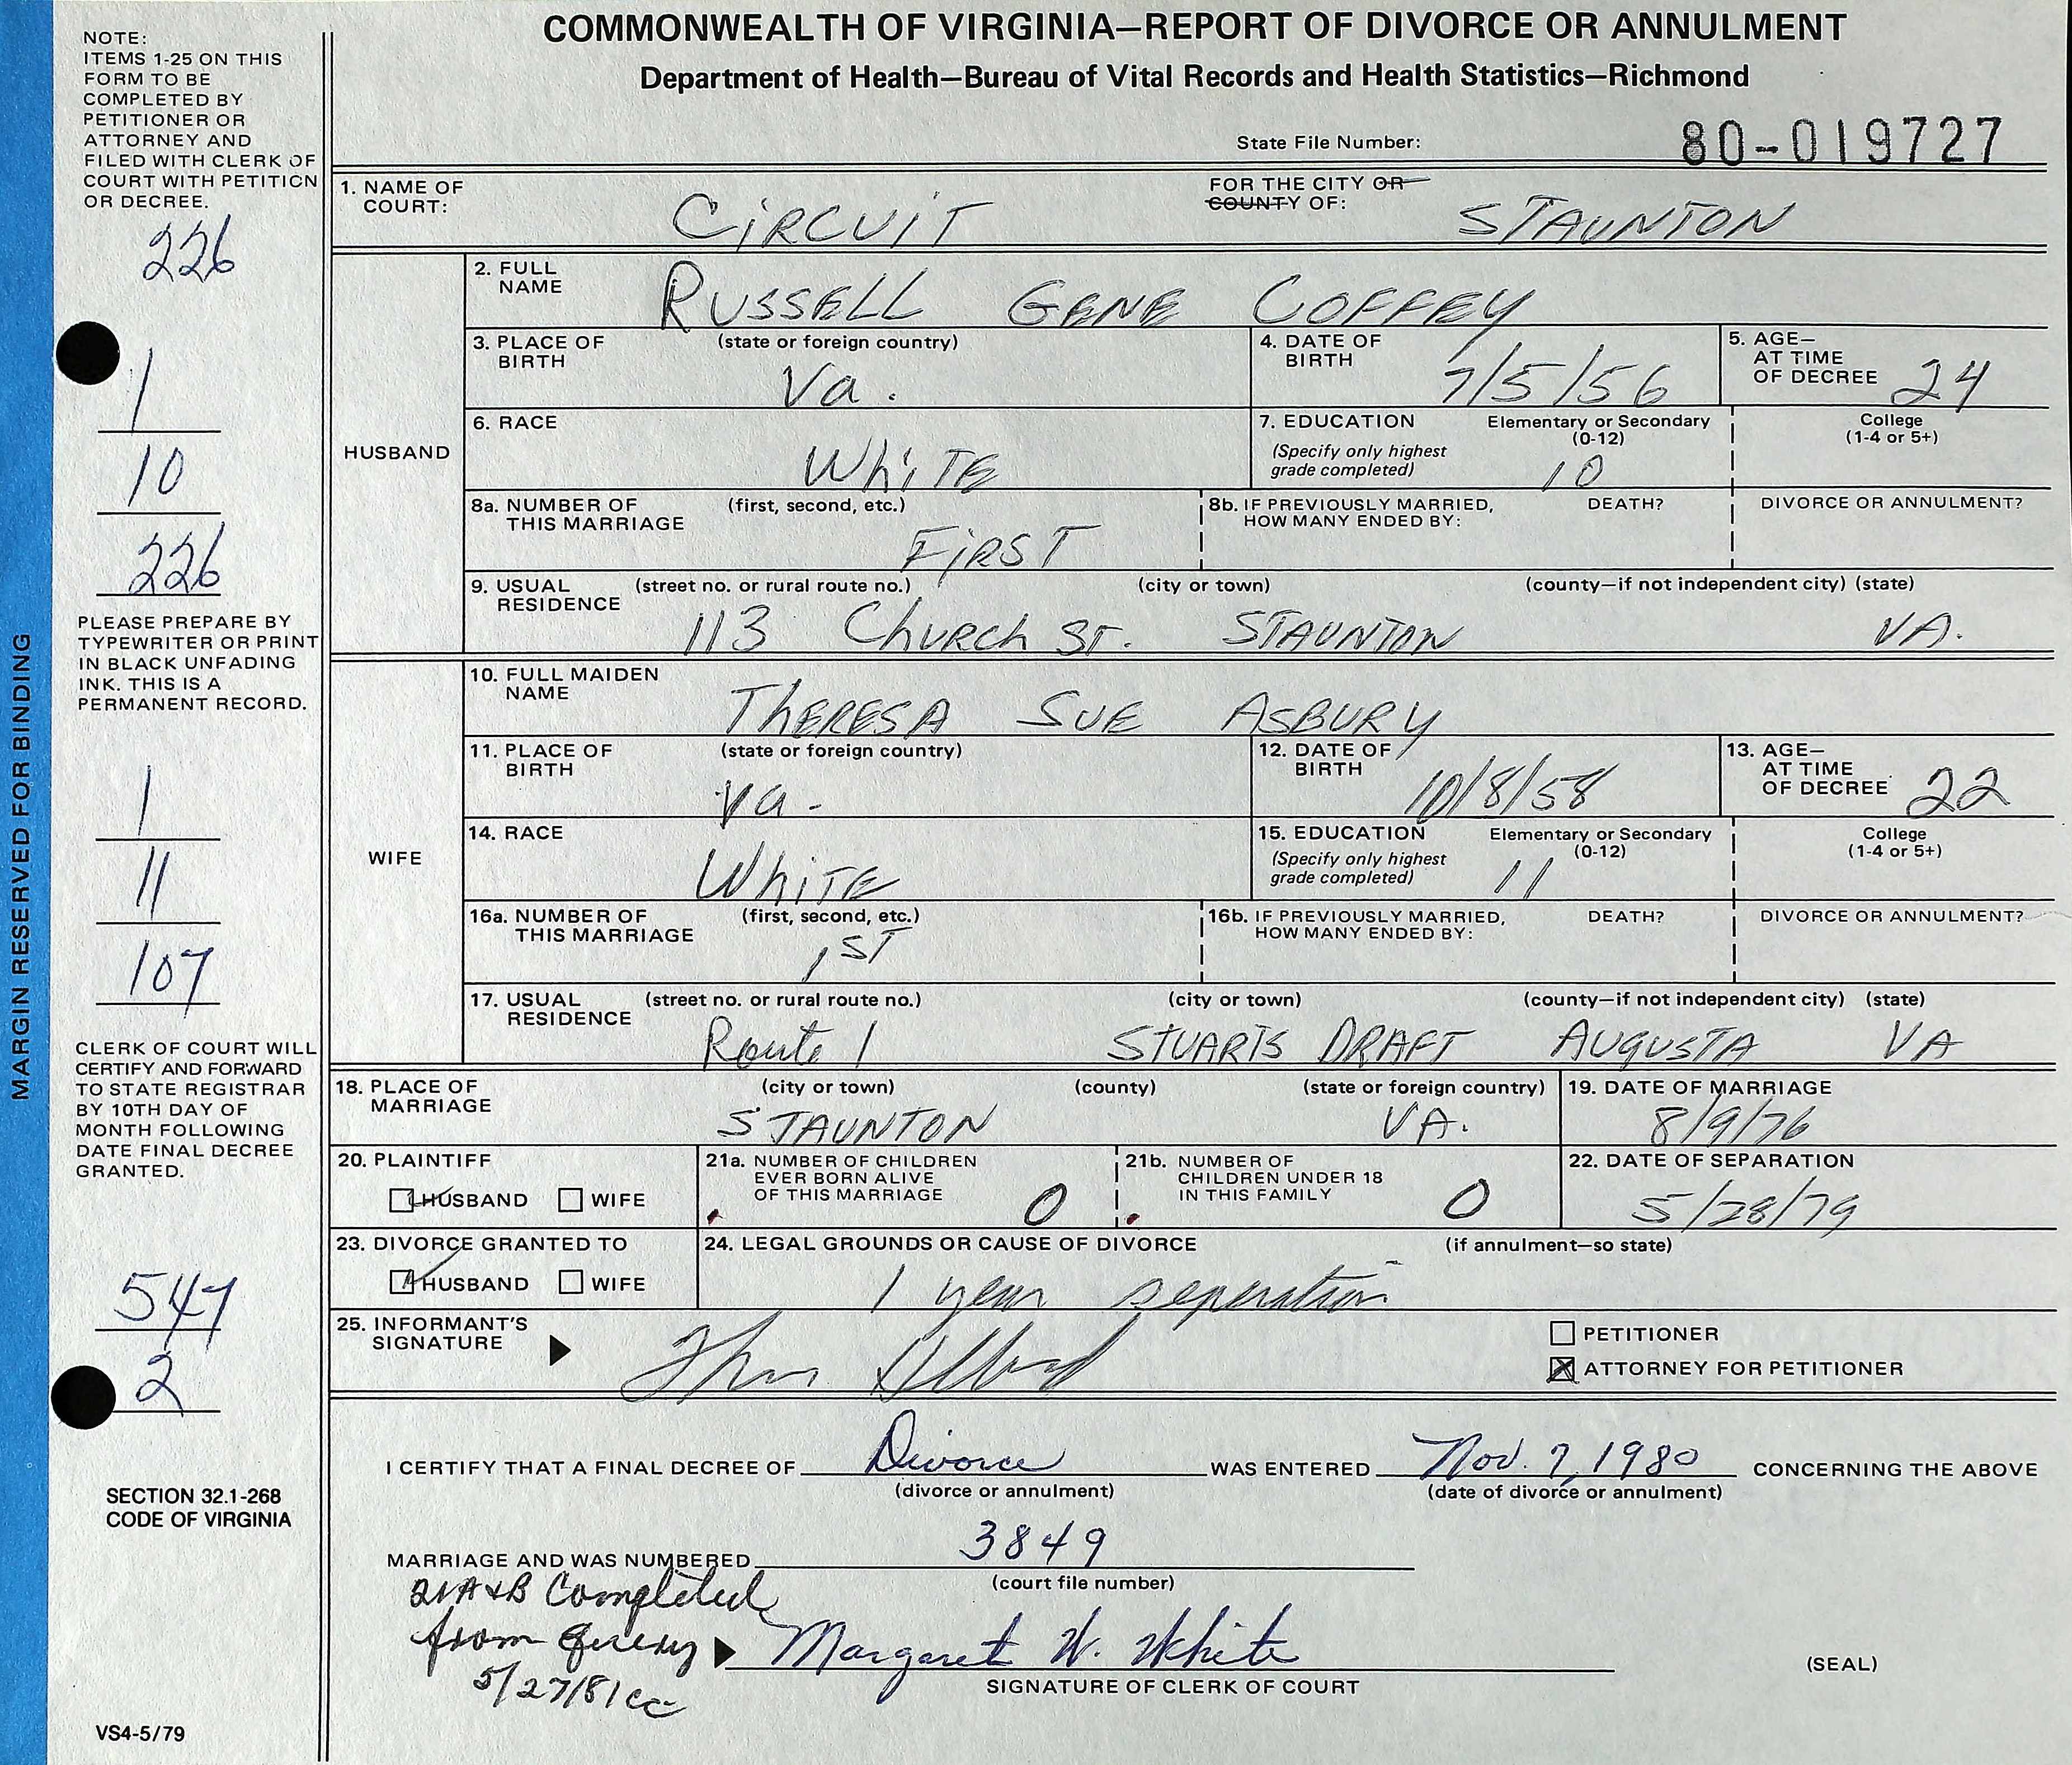 COMMONWEALTH OF VIRGINIA—REPORT OF DIVORCE OR ANNULMENT
Department of Health—Bureau of Vital Records and Health Statistics—Richmond
State File Number: 80-019727
NOTE:
ITEMS 1-25 ON THIS
FORM TO BE
COMPLETED BY
PETITIONER OR
ATTORNEY AND
FILED WITH CLERK OF
COURT WITH PETITION
OR DECREE.
226
1
10
226
PLEASE PREPARE BY
TYPEWRITER OR PRINT
IN BLACK UNFADING
INK. THIS IS A
PERMANENT RECORD.
1
11
107
CLERK OF COURT WILL
CERTIFY AND FORWARD
TO STATE REGISTRAR
BY 10TH DAY OF
MONTH FOLLOWING
DATE FINAL DECREE
GRANTED.
547
2
SECTION 32.1-268
CODE OF VIRGINIA
VS4-5/79
MARGIN RESERVED FOR BINDING
1. NAME OF COURT: CIRCUIT FOR THE CITY OR COUNTY OF: STAUNTON
HUSBAND
2. FULL NAME RUSSELL GENE COFFEY
3. PLACE OF BIRTH (state or foreign country) Va.
4. DATE OF BIRTH 7/5/56
5. AGE—AT TIME OF DECREE 24
6. RACE WhiTE
7. EDUCATION (Specify only highest grade completed) Elementary or Secondary (0-12) 10 College (1-4 or 5+)
8a. NUMBER OF THIS MARRIAGE (first, second, etc.) FiRST
8b. IF PREVIOUSLY MARRIED, HOW MANY ENDED BY: DEATH? DIVORCE OR ANNULMENT?
9. USUAL RESIDENCE (street no. or rural route no.) (city or town) (county—if not independent city) (state)
113 Church ST. STAUNTON VA.
WIFE
10. FULL MAIDEN NAME ThERESA SUE ASBURY
11. PLACE OF BIRTH (state or foreign country) Va.
12. DATE OF BIRTH 10/8/58
13. AGE—AT TIME OF DECREE 22
14. RACE WhiTE
15. EDUCATION (Specify only highest grade completed) Elementary or Secondary (0-12) 11 College (1-4 or 5+)
16a. NUMBER OF THIS MARRIAGE (first, second, etc.) 1ST
16b. IF PREVIOUSLY MARRIED, HOW MANY ENDED BY: DEATH? DIVORCE OR ANNULMENT?
17. USUAL RESIDENCE (street no. or rural route no.) (city or town) (county—if not independent city) (state)
Route 1 STUARTS DRAFT AUGUSTA VA
18. PLACE OF MARRIAGE (city or town) (county) (state or foreign country)
STAUNTON VA.
19. DATE OF MARRIAGE 8/9/76
20. PLAINTIFF HUSBAND WIFE
21a. NUMBER OF CHILDREN EVER BORN ALIVE OF THIS MARRIAGE 0
21b. NUMBER OF CHILDREN UNDER 18 IN THIS FAMILY 0
22. DATE OF SEPARATION 5/28/79
23. DIVORCE GRANTED TO HUSBAND WIFE
24. LEGAL GROUNDS OR CAUSE OF DIVORCE (if annulment—so state)
1 year seperation
25. INFORMANT'S SIGNATURE
PETITIONER
ATTORNEY FOR PETITIONER
I CERTIFY THAT A FINAL DECREE OF Divorce WAS ENTERED Nov. 7, 1980 CONCERNING THE ABOVE
(divorce or annulment) (date of divorce or annulment)
MARRIAGE AND WAS NUMBERED 3849
(court file number)
21A+B Completed
from query
5/27/81 cc
Margaret W. White
SIGNATURE OF CLERK OF COURT
(SEAL)